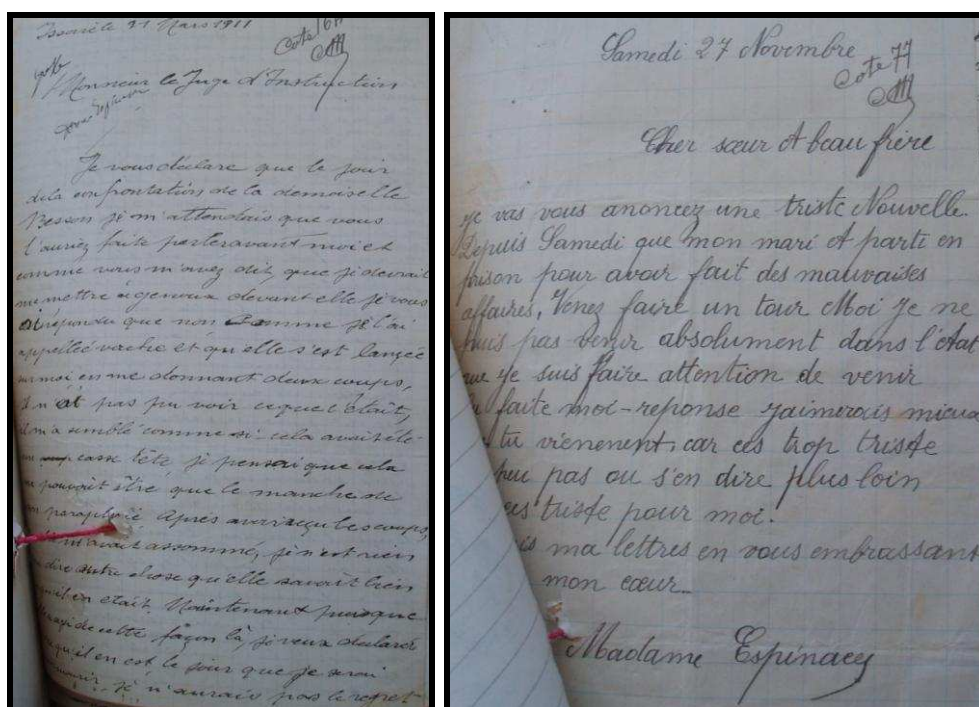 21 Mars 1911
Cote
Monsieur le Juge d'Instruction
Je vous déclare que le jour
de la confrontation de la demoiselle
Besson je m'attendais que vous
l'auriez faite parler avant moi et
comme vous m'avez dit, que je devrait
me mettre à genoux devant elle je vous
ai répondu que non comme je l'ai
appellée vache et qu'elle s'est lançée
sur moi en me donnant deux coups,
pas pu voir ce que c'était,
semblé comme si cela avait été
casse tête, je pensai que cela
pouvait être que le manche de
Après avoir reçu les coups,
m'avait assommé, je n'est rien
dire autre chose qu'elle savait bien
en était. Maintenant puisque
de cette façon là, je veux déclarer
qu'il en est le jour que je serai
je n'aurais pas le regret
Samedi 27 Novembre
Cote 77
Cher sœur et beau frère
Je vas vous anoncez une triste Nouvelle.
Depuis Samedi que mon mari et parti en
prison pour avoir fait des mauvaises
affaires, Venez faire un tour Moi je ne
puis pas venir absolument dans l'état
que je suis faire attention de venir
faite moi-reponse jaimerais mieux
tu vienenent car ces trop triste
peu pas ou s'en dire plus loin
ces triste pour moi.
ma lettres en vous embrassant
mon cœur
Madame Espinacey